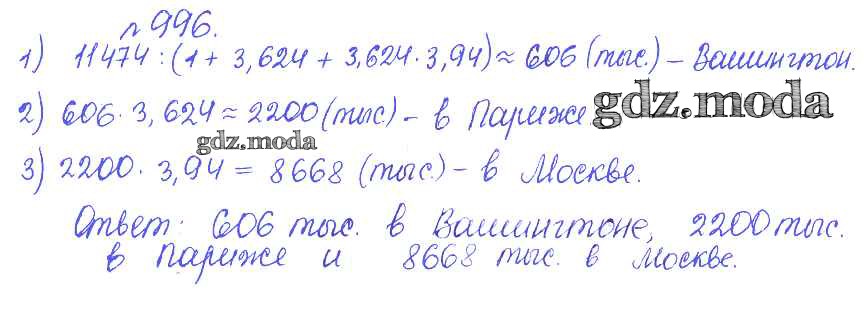 №996.
1) 11474 : (1 + 3,624 + 3,624 · 3,94) ≈ 606 (тыс.) - Вашингтон.
2) 606 · 3,624 ≈ 2200 (тыс.) - в Париже
gdz.moda
gdz.moda
3) 2200 · 3,94 = 8668 (тыс.) - в Москве.
Ответ: 606 тыс. в Вашингтоне, 2200 тыс.
в Париже и 8668 тыс. в Москве.